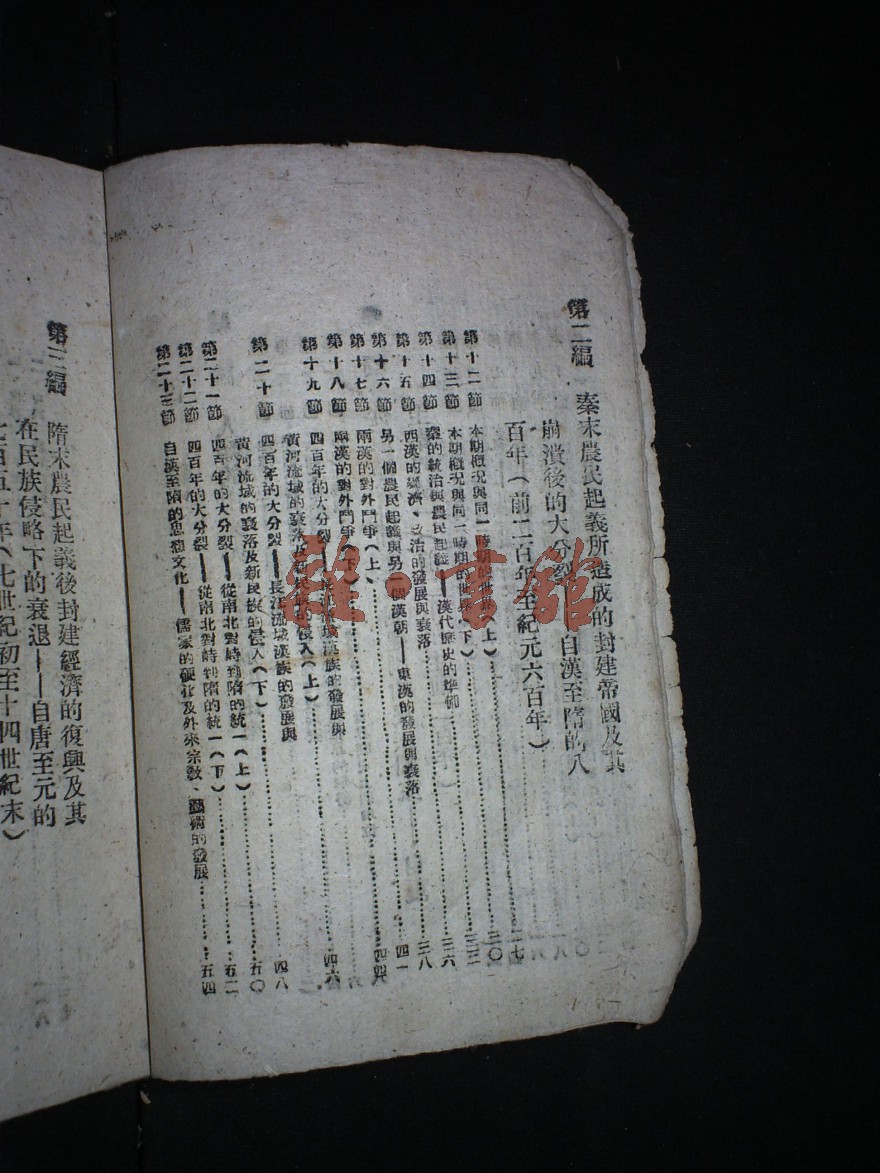 第二編 秦末農民起義所造成的封建帝國及其
崩潰後的大分裂——自漢至隋的八
百年(前二百年至紀元六百年)……二七
第十二節 本期概況與同一時期的世界(上)……三〇
第十三節 本期概況與同一時期的世界(下)……三三
第十四節 秦的統治與農民起義——漢代歷史的準備……三六
第十五節 西漢的經濟、政治的發展與衰落……三八
第十六節 另一個農民起義與另一個漢朝——東漢的發展與衰落……四一
第十七節 兩漢的對外鬥爭(上)
第十八節 兩漢的對外鬥爭(下)
第十九節 四百年的大分裂——長江流域漢族的發展與
黃河流域的衰落及新民族的侵入(上)……四八
第二十節 四百年的大分裂——長江流域漢族的發展與
黃河流域的衰落及新民族的侵入(下)……五〇
第二十一節 四百年的大分裂——從南北對峙到隋的統一(上)……五二
第二十二節 四百年的大分裂——從南北對峙到隋的統一(下)
第二十三節 自漢至隋的思想文化——儒家的硬化及外來宗教、藝術的發展……五四
第三編 隋末農民起義後封建經濟的復興及其
在民族侵略下的衰退——自唐至元的
七百五十年(七世紀初至十四世紀末)
雜·書館